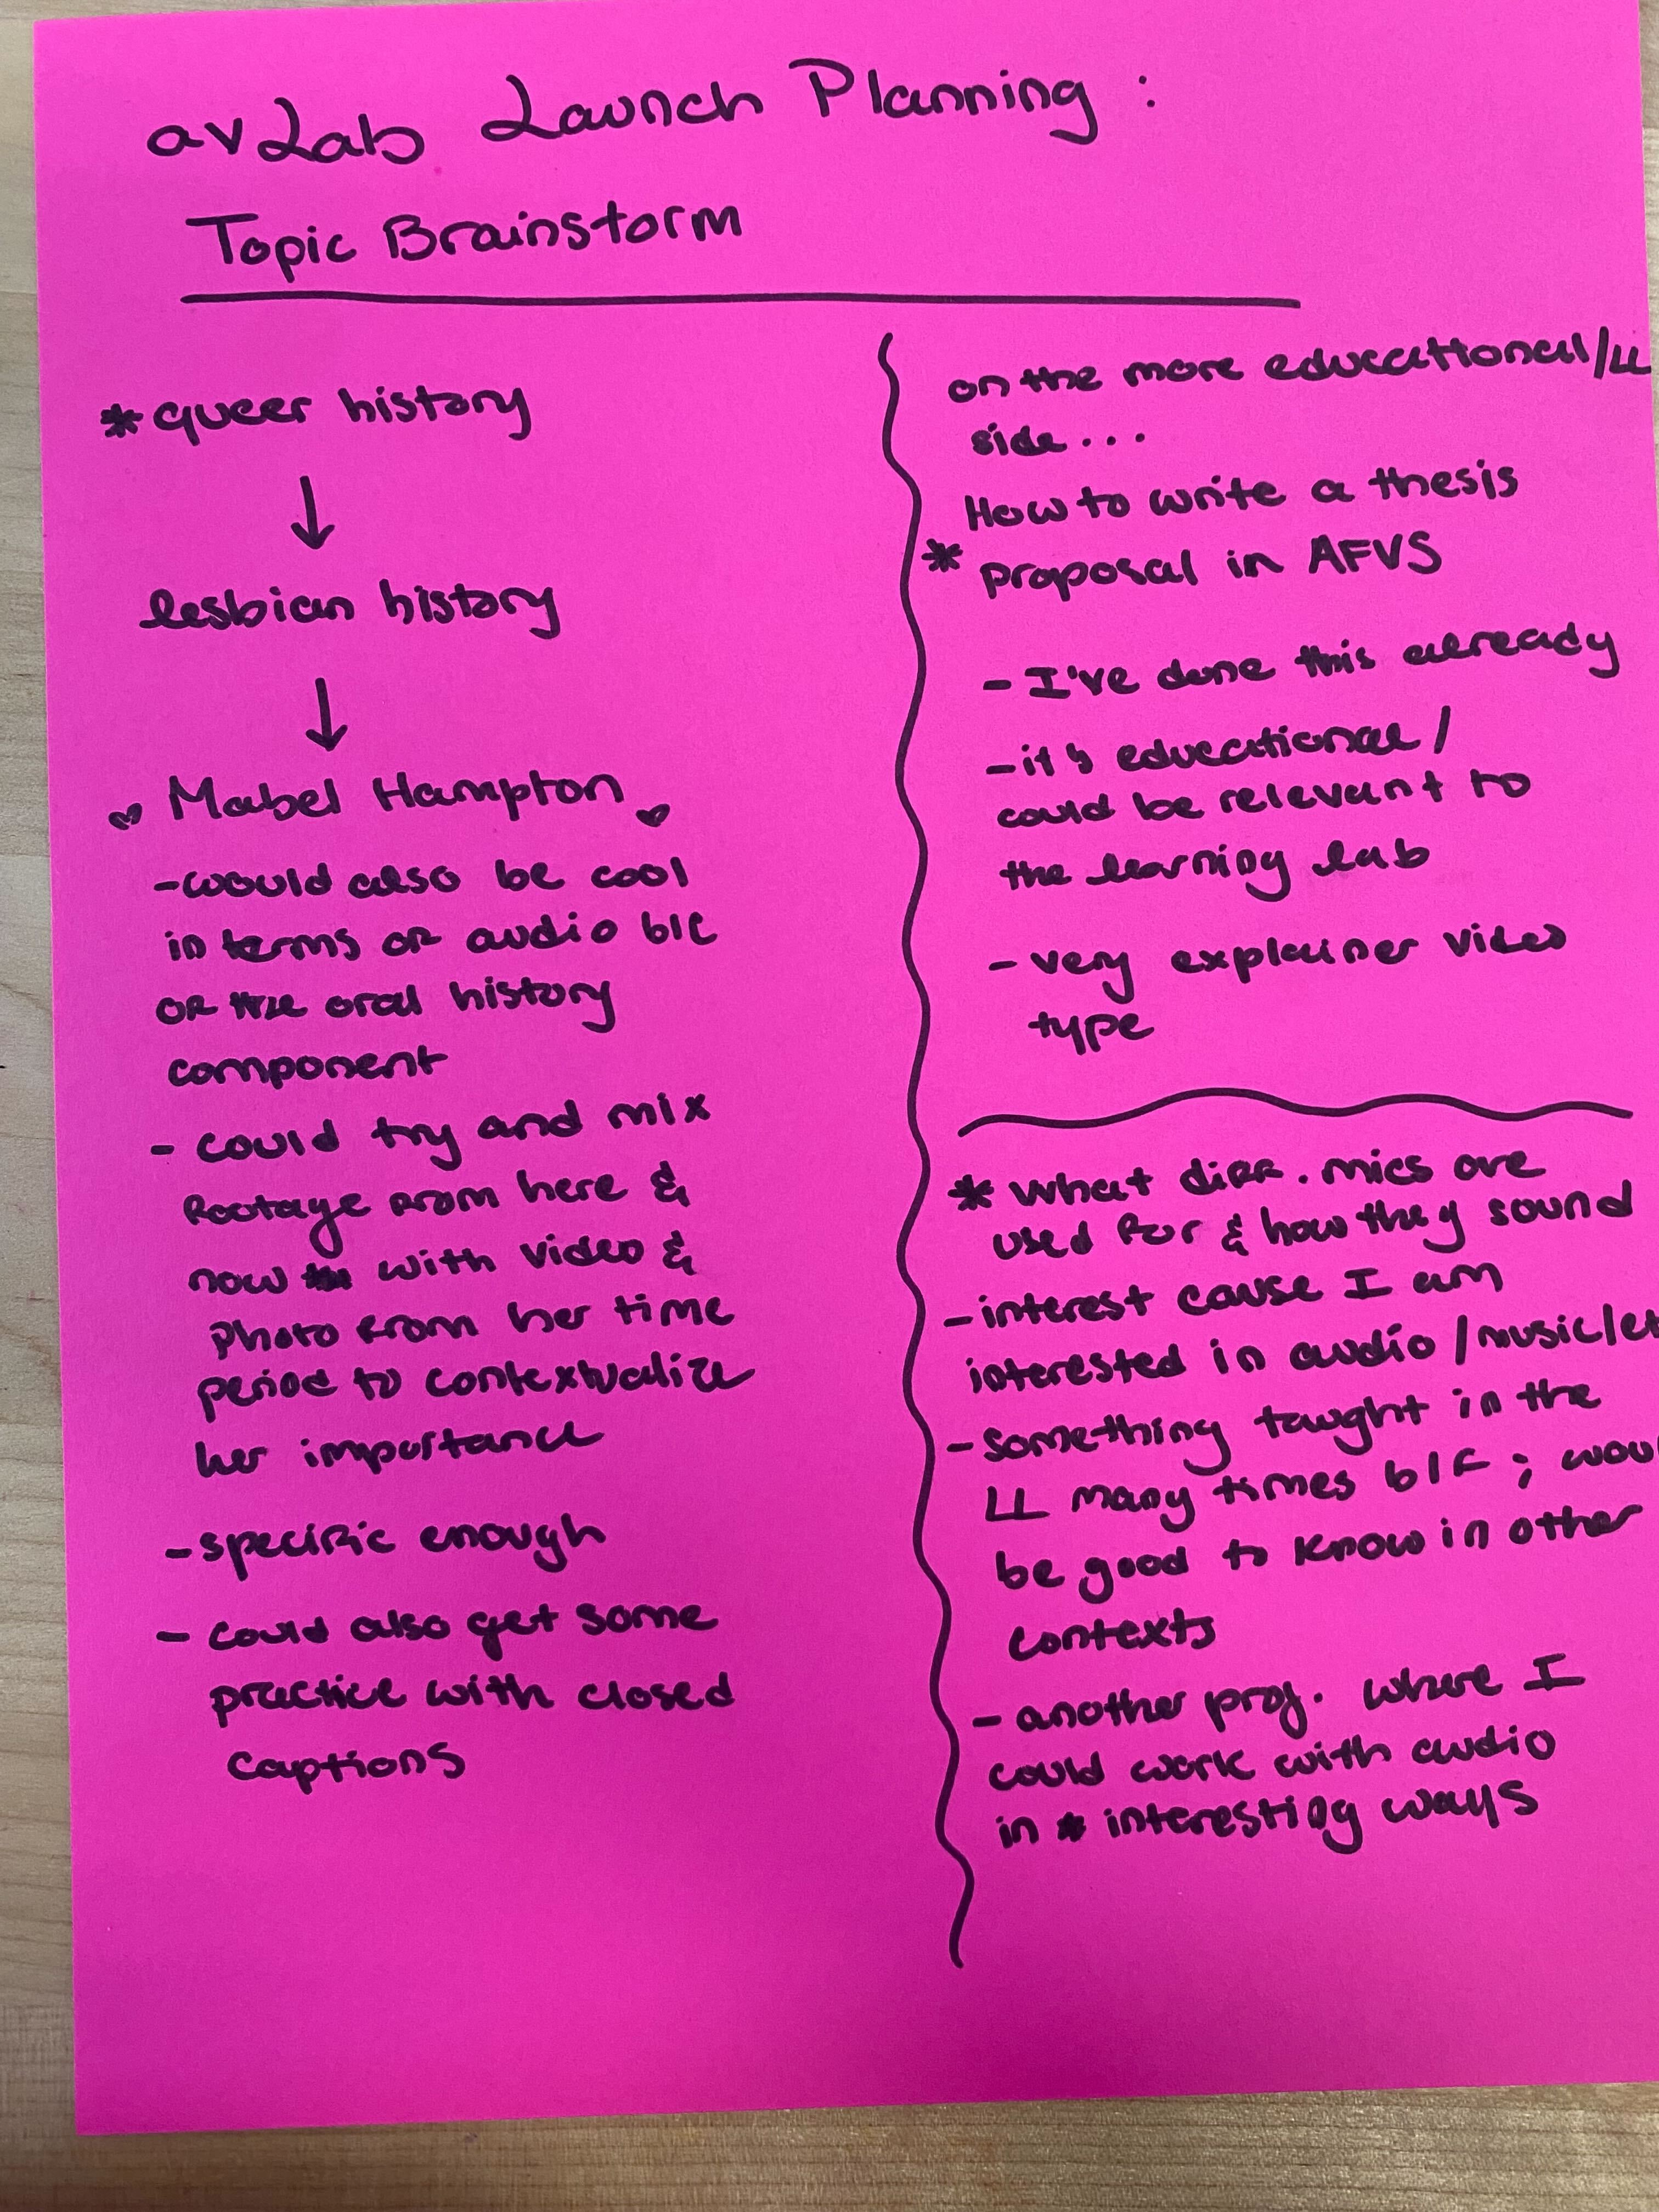 avLab Launch Planning :
Topic Brainstorm
* queer history
↓
lesbian history
↓
♥ Mabel Hampton ♥
- would also be cool
in terms of audio b/c
of the oral history
component
- could try and mix
footage from here &
now with video &
photo from her time
period to contextualize
her importance
- specific enough
- could also get some
practice with closed
captions
on the more educational/LL
side...
How to write a thesis
* proposal in AFVS
- I've done this already
- it's educational/
could be relevant to
the learning lab
- very explainer video
type
* what diff. mics are
used for & how they sound
- interest cause I am
interested in audio/music/et
- something taught in the
LL many times b/f ; wou
be good to know in other
contexts
- another proj. where I
could work with audio
in interesting ways